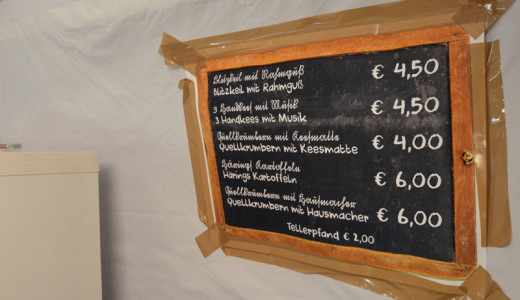 Blitzkeil mit Rahmguß
Blitzkeil mit Rahmguß € 4,50
3 Handkees mit Musik
3 Handkees mit Musik € 4,50
Quellkrumbern mit Keesmatte
Quellkrumbern mit Keesmatte € 4,00
Härings Kartoffeln
Härings Kartoffeln € 6,00
Quellkrumbern mit Hausmacher
Quellkrumbern mit Hausmacher € 6,00
Tellerpfand € 2,00